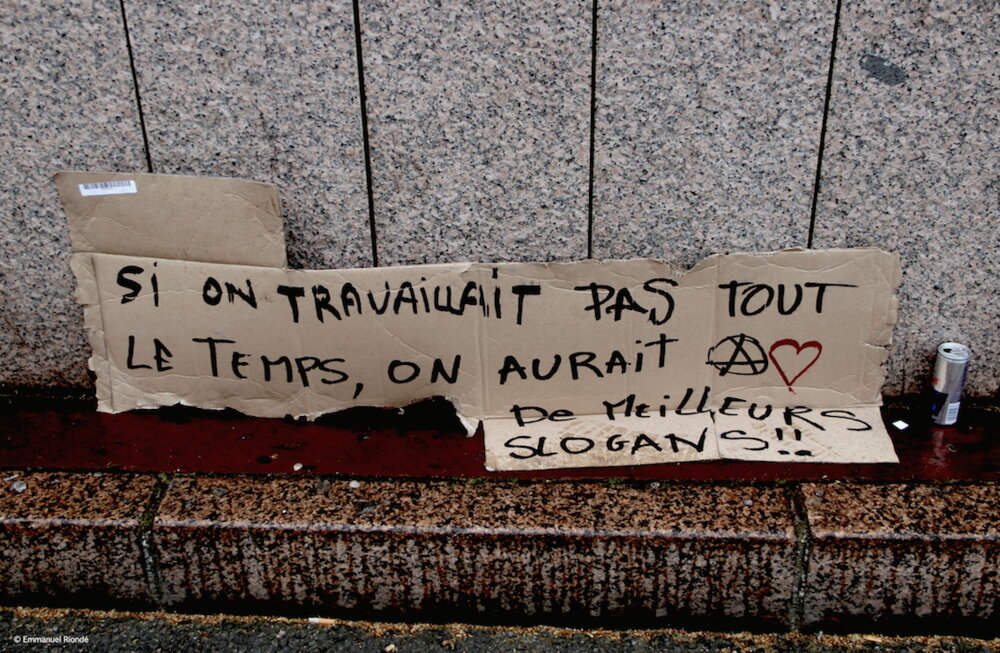 SI ON TRAVAILLAIT PAS TOUT
LE TEMPS, ON AURAIT
DE MEILLEURS
SLOGANS!!
© Emmanuel Riondé